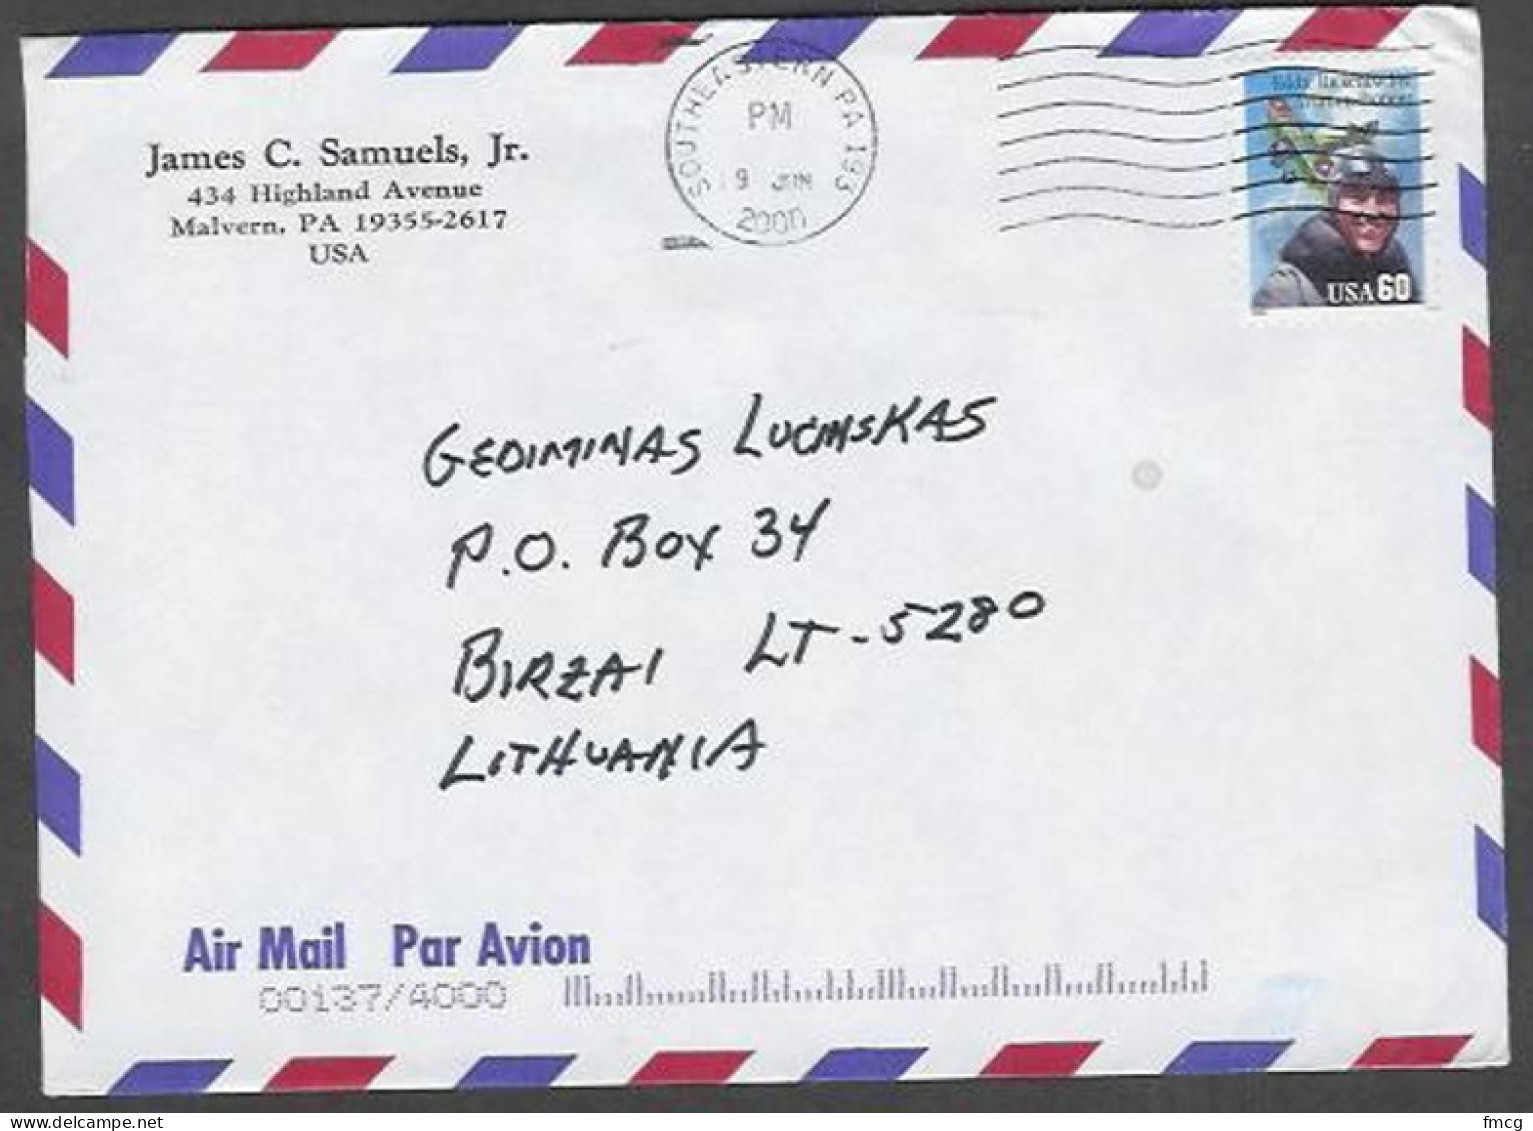 James C. Samuels, Jr.
434 Highland Avenue
Malvern, PA 19355-2617
USA
SOUTHEASTERN PA 193
PM
9 JUN
2000
USA60
GEDIMINAS LUCINSKAS
P.O. BOX 34
BIRZAI LT-5280
LITHUANIA
Air Mail Par Avion
00137/4000
fmcg